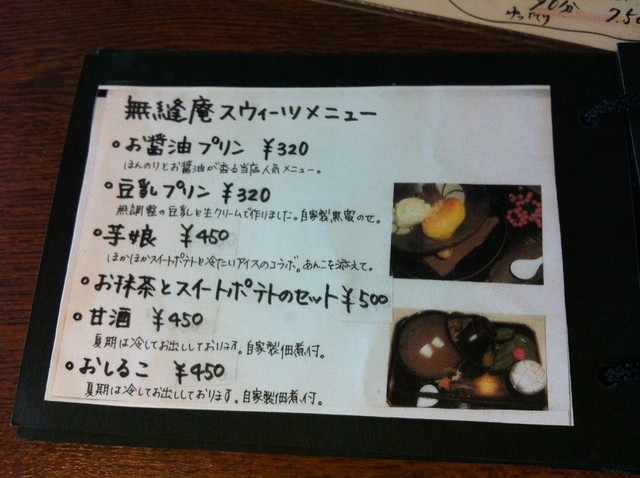 90分
ゆったり
7.50
無縫庵スウィーツメニュー
・お醤油プリン ¥320
ほんのりとお醤油が香る当店人気メニュー。
・豆乳プリン ¥320
無調整の豆乳と生クリームで作りました。自家製黒蜜のせ。
・芋娘 ¥450
ほかほかスイートポテトと冷たいアイスのコラボ。あんこを添えて。
・お抹茶とスイートポテトのセット ¥500
・甘酒 ¥450
夏期は冷してお出ししております。自家製佃煮付。
・おしるこ ¥450
夏期は冷してお出ししております。自家製佃煮付。